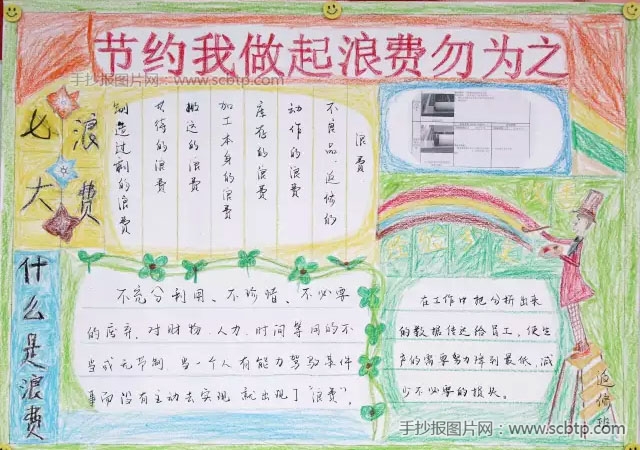 节约我做起浪费勿为之
手抄报图片网:www.scbtp.com
七大浪费
不良品、返修的浪费
动作的浪费
库存的浪费
加工本身的浪费
搬运的浪费
等待的浪费
制造过剩的浪费
什么是浪费
不充分利用、不珍惜、不必要
的废弃,对财物、人力、时间等用的不
当或无节制,当一个人有能力驾驭某件
事而没有主动去实现 就出现了“浪费”。
在工作中把分析出来
的数据传达给员工,使生
产的需要努力降到最低,减
少不必要的损失。
返修班
手抄报图片网:www.scbtp.com